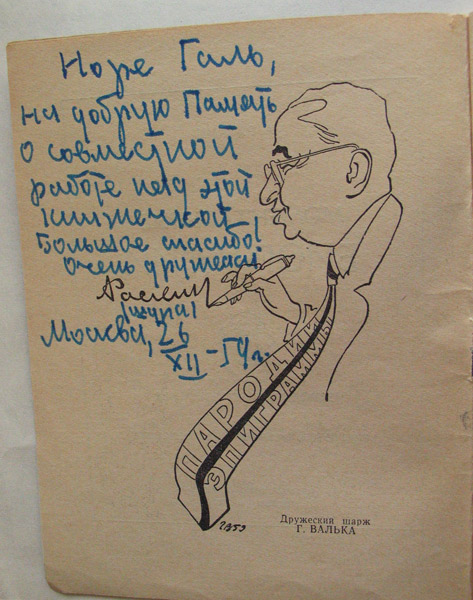 Норе Галь,
на добрую Память
о совместной
работе над этой
книжечкой
Большое спасибо!
Очень дружески
А Раскин
Москва, 26
XII - 54 г.
ПАРОДИИ
ЭПИГРАММЫ
Дружеский шарж
Г. ВАЛЬКА